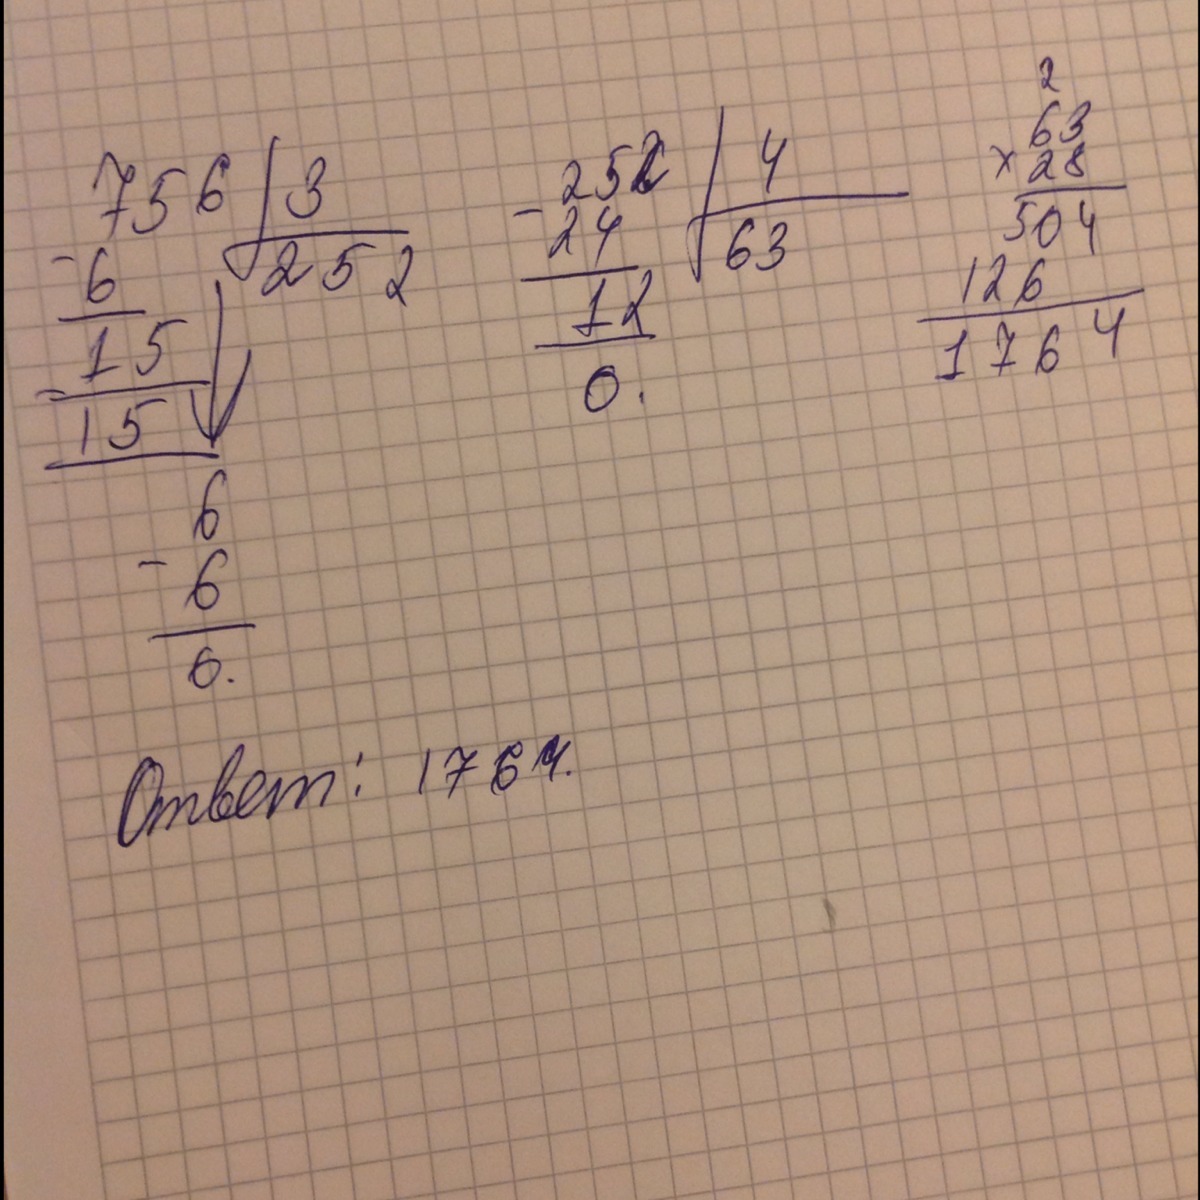 756 | 3
- 6 252
15
- 15
6
- 6
0.
252 | 4
- 24 63
12
0.
2
63
× 28
504
126
1764
Ответ: 1764.